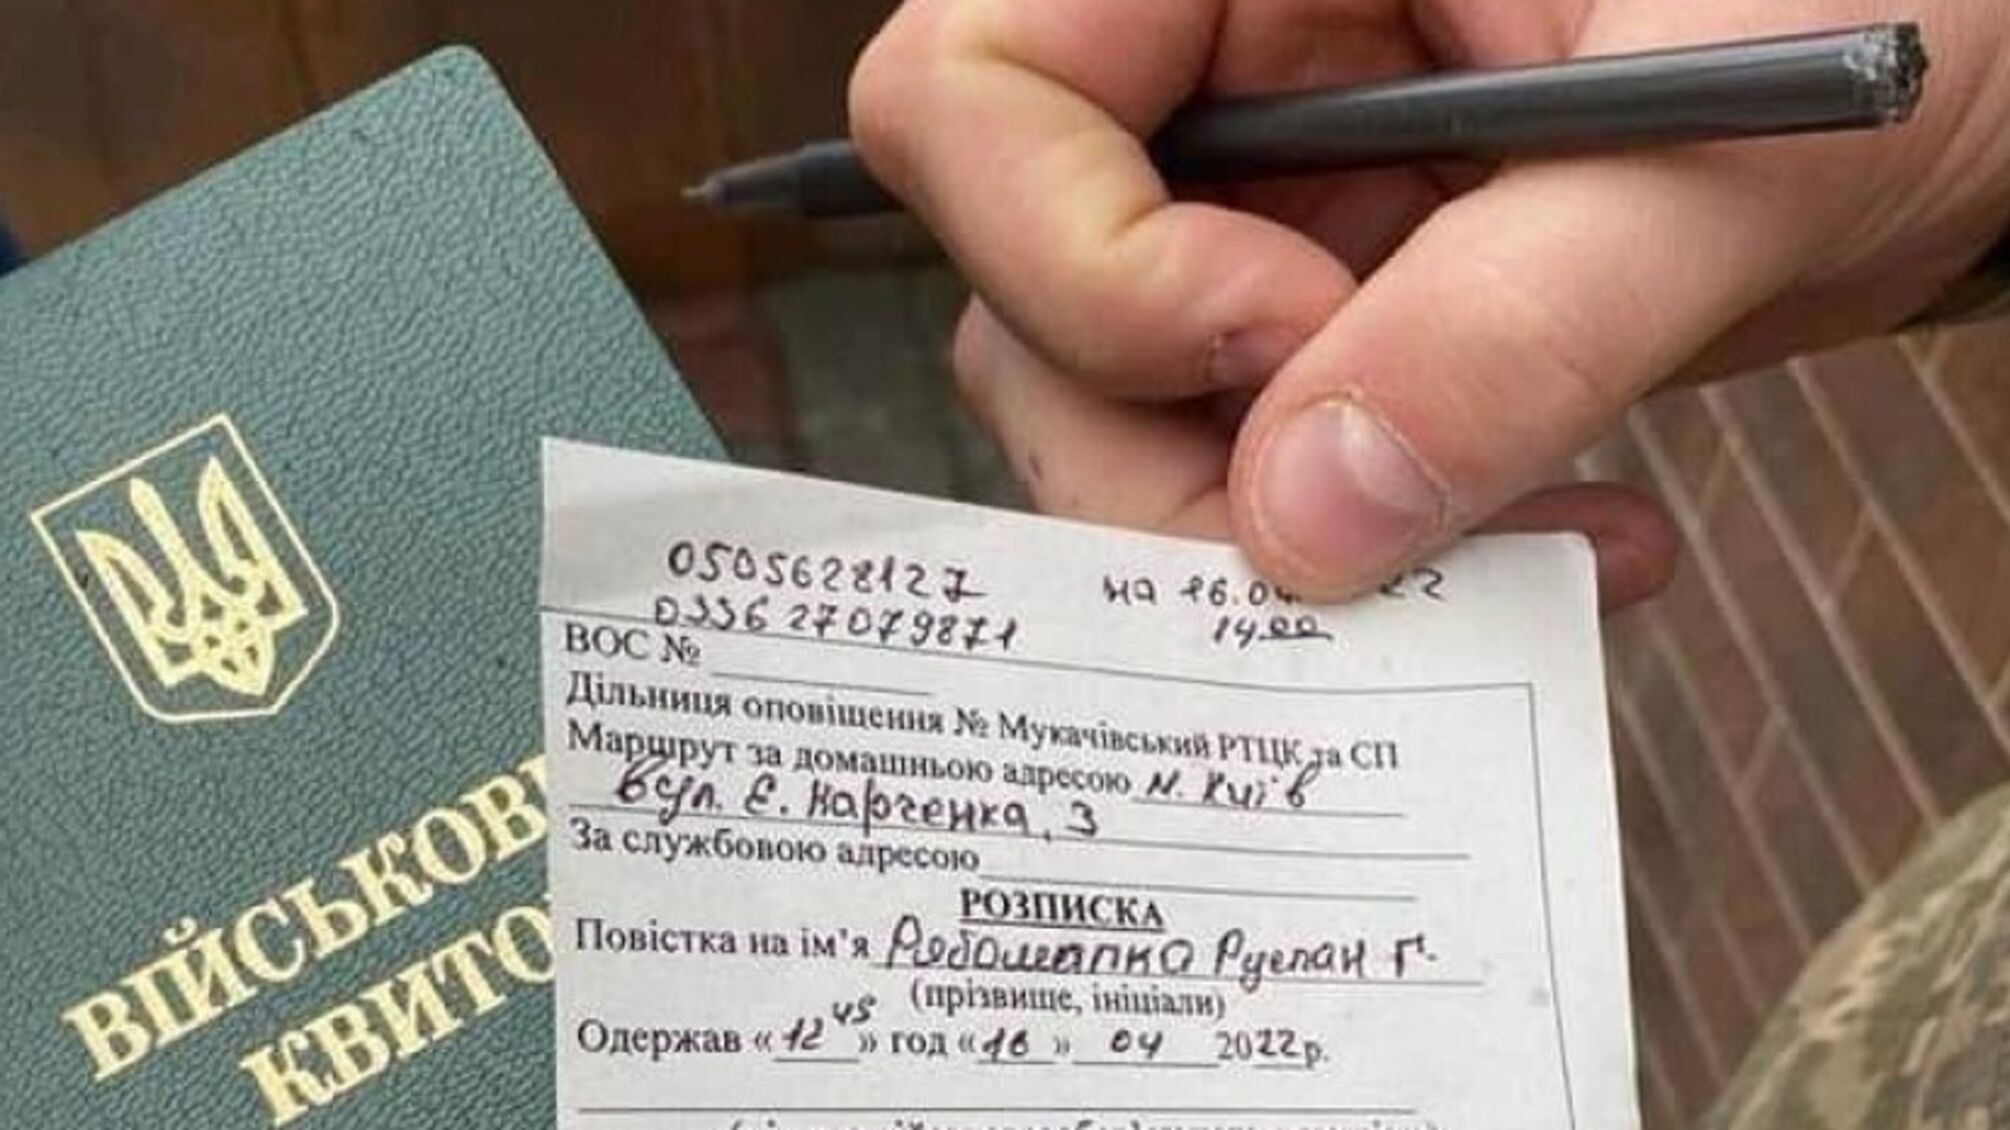 ВІЙСЬКОВ
КВИТО
0505628127
0336 27079871
на 16.04 22
14.00
ВОС №
Дільниця оповіщення № Мукачівський РТЦК та СП
Маршрут за домашньою адресою м. Київ
вул. Є. Харченка, 3
За службовою адресою
РОЗПИСКА
Повістка на ім'я Рябошапко Руслан Г.
(прізвище, ініціали)
Одержав «12 45» год «16» 04 2022р.